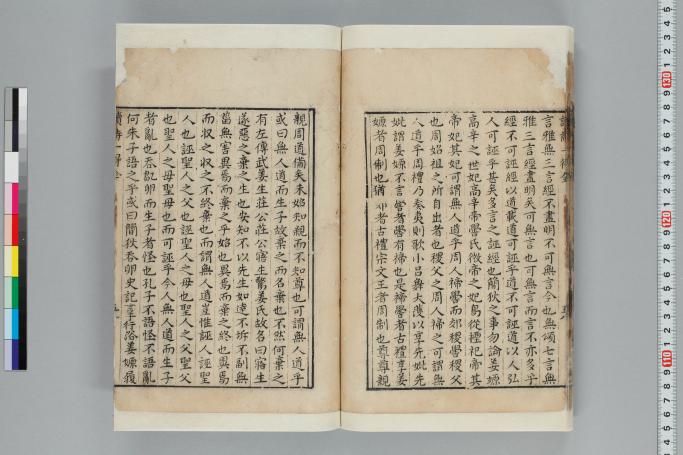 言雅無三言經不盡明不可無言今也無頌七言無
雅三言經盡明矣可無言也可無言而言不亦多乎
經不可誣經以道載道可誣乎道不可誣道以人弘
人可誣乎甚矣多言之誣經也簡狄之事勿論姜嫄
高辛之世妃高辛帝嚳氏微帝之妃焉從禋祀帝其
帝妃其妃可謂無人道乎周人禘嚳而郊稷嚳稷父
也周始祖之所自出者也稷父之周人禘之可謂無
人道乎周禮乃奏夷則歌小呂舞大濩以享先妣先
妣謂姜嫄不言嚳者嚳有禘也是禘嚳者古禮享姜
嫄者周制也猶郊者古禮宗文王者周制也尊尊親
親周道備矣未始知親而不知尊也可謂無人道乎
或曰無人道而生子故棄之而名棄也不然何棄之
有左傳武姜生莊公莊公寤生驚姜氏故名曰寤生
遂惡之棄之生也安知不以先生如達不坼不副無
菑無害異焉而棄之乎始也異焉而棄之終也異焉
而收之收之不終棄也而謂無人道豈惟誣人誣聖
人也誣聖人之父也誣聖人之母也聖人之父聖父
也聖人之母聖母也而可誣乎今人無人道而生子
者亂也吞卵而生子者怪也孔子不語怪不語亂
何朱子語之乎或曰簡狄吞卵史記行浴姜嫄履